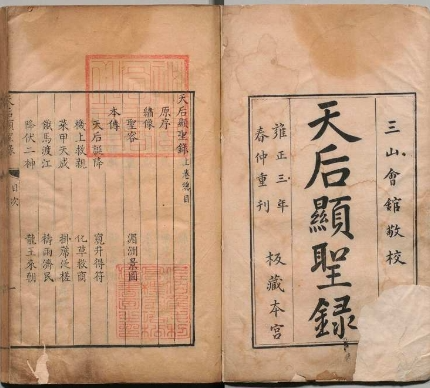 三山會館敬校
天后顯聖錄
雍正三年
春仲重刊
板藏本宮
天后顯聖錄上卷總目
原序
繡像
聖容 湄洲景圖
本傳
天后誕降 窺井得符
機上救親 化草救商
菜甲天成 掛席泛槎
鐵馬渡江 禱雨濟民
降伏二神 龍王來朝
天后顯聖錄 目次 一